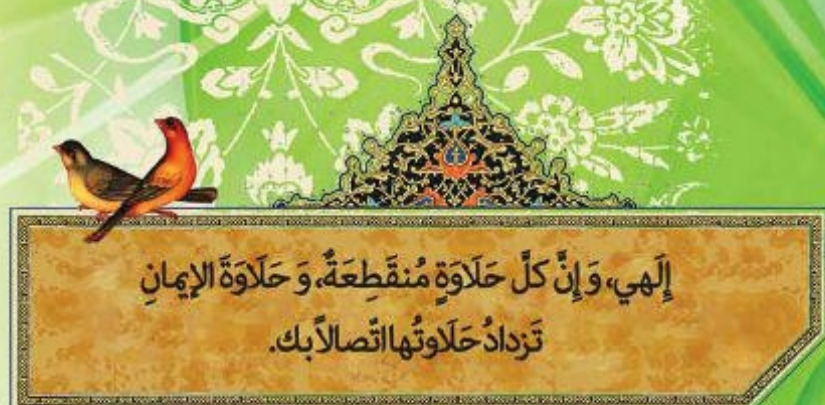 إِلَهي، وَ إِنَّ كلَّ حَلَاوَةٍ مُنقَطِعَةٌ، وَ حَلَاوَةَ الإیمانِ
تَزدادُ حَلَاوتُها اتّصالاً بك.